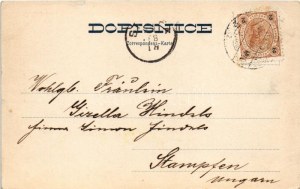 DOPISNICE
Correspondenz-Karte
Wohlgb. Fräulein
Gisella Hindels
Firma Simon Hindels
Stampfen
Ungarn